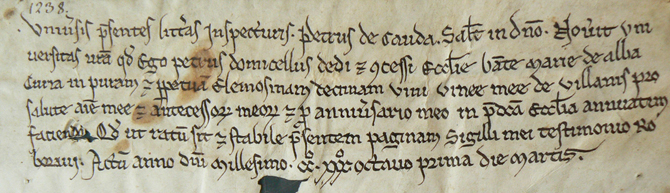 1238.
Univ'sis p'sentes litt'as inspectur's. Petrus de Cauda. Sal't in dno. Nov'it uni
versitas v'ra qd' Ego petrus domicellus dedi z 9cessi Ecclie bate Marie de alba
Cura in puram z p'petuā Elemosinam decimam vini vinee mee de Villanis pro
salute aie mee z antecessor meor z p anniv'sario meo in p'dcā Ecclia annuatim
faciendo Qd' ut ratū sit z stabile p'sentem paginam Sigilli mei testimonio Ro
boravi. Actū anno dni Millesimo. CC. XXX octavo prima die Martis.